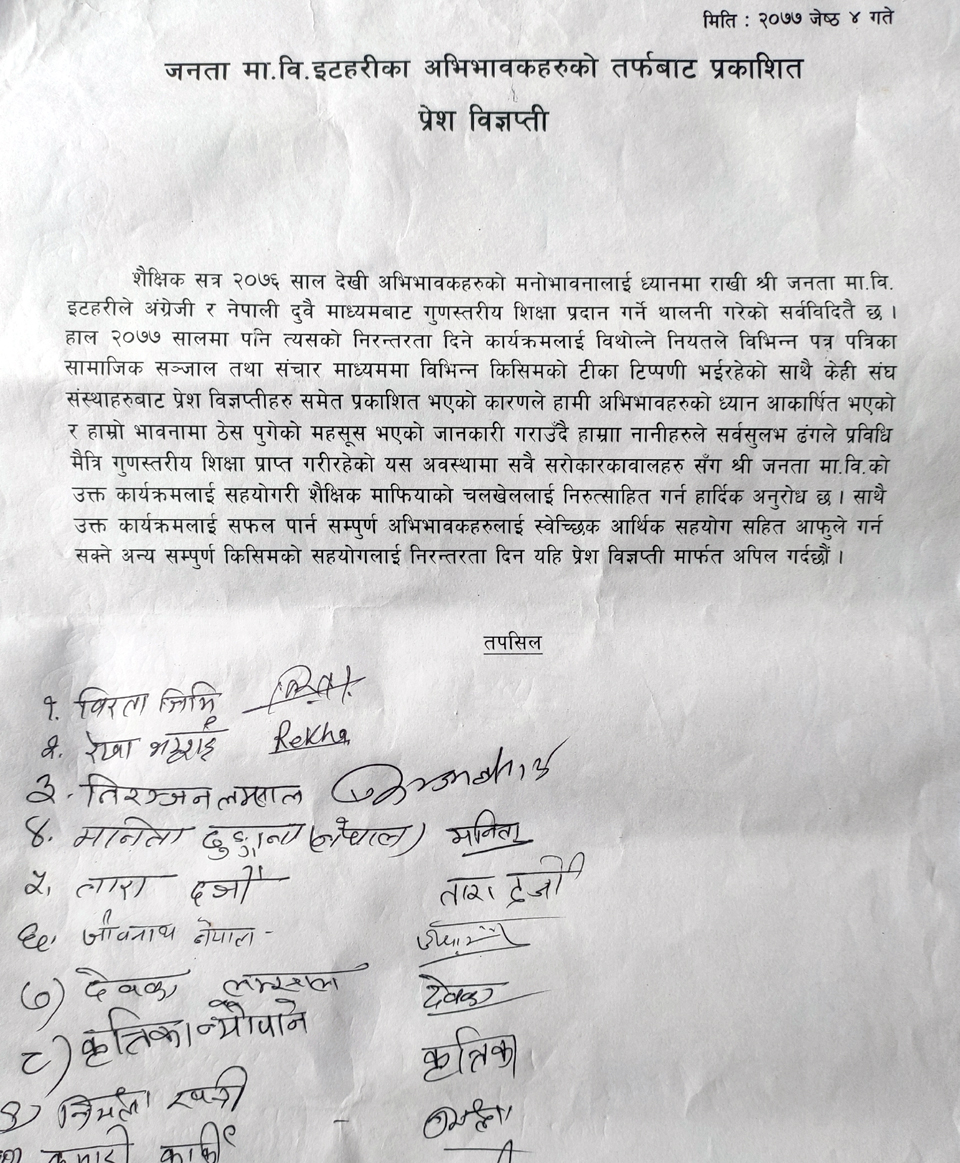 मिति : २०७७ जेष्ठ ४ गते
जनता मा.वि.इटहरीका अभिभावकहरुको तर्फबाट प्रकाशित
प्रेश विज्ञप्ती
शैक्षिक सत्र २०७६ साल देखी अभिभावकहरुको मनोभावनालाई ध्यानमा राखी श्री जनता मा.वि.
इटहरीले अंग्रेजी र नेपाली दुवै माध्यमबाट गुणस्तरीय शिक्षा प्रदान गर्ने थालनी गरेको सर्वविदितै छ ।
हाल २०७७ सालमा पनि त्यसको निरन्तरता दिने कार्यक्रमलाई विथोल्ने नियतले विभिन्न पत्र पत्रिका
सामाजिक सञ्जाल तथा संचार माध्यममा विभिन्न किसिमको टीका टिप्पणी भईरहेको साथै केही संघ
संस्थाहरुबाट प्रेश विज्ञप्तीहरु समेत प्रकाशित भएको कारणले हामी अभिभावहरुको ध्यान आकार्षित भएको
र हाम्रो भावनामा ठेस पुगेको महसूस भएको जानकारी गराउँदै हाम्राा नानीहरुले सर्वसुलभ ढंगले प्रविधि
मैत्रि गुणस्तरीय शिक्षा प्राप्त गरीरहेको यस अवस्थामा सवै सरोकारकावालहरु सँग श्री जनता मा.वि.को
उक्त कार्यक्रमलाई सहयोगरी शैक्षिक माफियाको चलखेललाई निरुत्साहित गर्न हार्दिक अनुरोध छ । साथै
उक्त कार्यक्रमलाई सफल पार्न सम्पुर्ण अभिभावकहरुलाई स्वेच्छिक आर्थिक सहयोग सहित आफुले गर्न
सक्ने अन्य सम्पुर्ण किसिमको सहयोगलाई निरन्तरता दिन यहि प्रेश विज्ञप्ती मार्फत अपिल गर्दछौं ।
तपसिल
१.
२. रेखा भट्टराई Rekha
३. निरञ्जन लम्साल
४. मानिता ढुङ्गाना (नेपाल) मनिता
५. तारा दर्जी तारा दर्जी
६. जीवनाथ नेपाल -
७) देवका लम्साल देवका
८) कृत्तिका न्यौपाने कृत्तिका
९) निर्मला
कुमारी कार्की